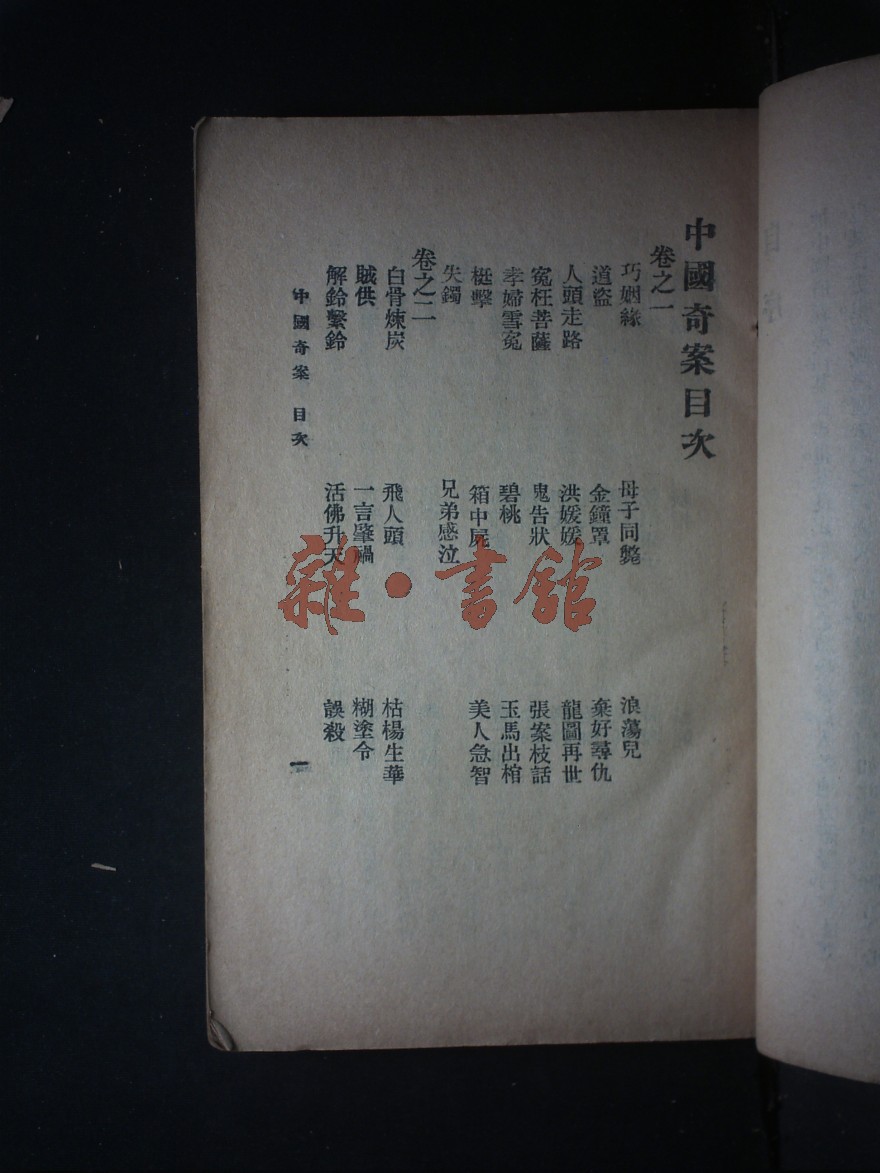 中國奇案目次
卷之一
巧姻緣 母子同斃 浪蕩兒
道盜 金鐘罩 棄好尋仇
人頭走路 洪媛媛 龍圖再世
冤枉菩薩 鬼告狀 張案枝話
孝婦雪冤 碧桃 玉馬出棺
梃擊 箱中屍 美人急智
失鐲 兄弟感泣
卷之二
白骨煉炭 飛人頭 枯楊生華
賊供 一言肇禍 糊塗令
解鈴繫鈴 活佛升天 誤殺
中國奇案 目次 一
雜·書館
自序